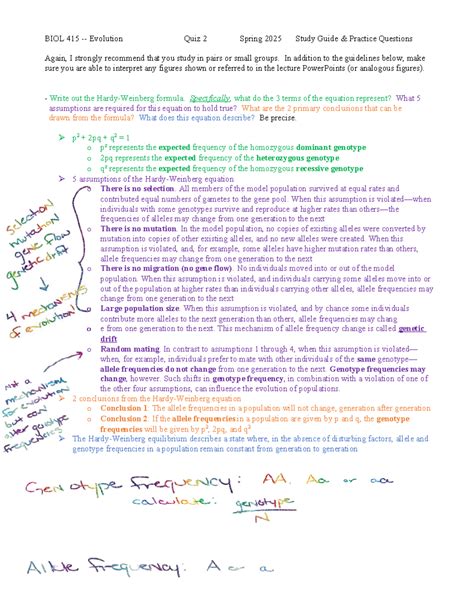 BIOL 415 -- Evolution Quiz 2 Spring 2025 Study Guide & Practice Questions
Again, I strongly recommend that you study in pairs or small groups. In addition to the guidelines below, make
sure you are able to interpret any figures shown or referred to in the lecture PowerPoints (or analogous figures).
- Write out the Hardy-Weinberg formula. Specifically, what do the 3 terms of the equation represent? What 5
assumptions are required for this equation to hold true? What are the 2 primary conclusions that can be
drawn from the formula? What does this equation describe? Be precise.
➢ p² + 2pq + q² = 1
o p² represents the expected frequency of the homozygous dominant genotype
o 2pq represents the expected frequency of the heterozygous genotype
o q² represents the expected frequency of the homozygous recessive genotype
➢ 5 assumptions of the Hardy-Weinberg equation:
o There is no selection. All members of the model population survived at equal rates and
contributed equal numbers of gametes to the gene pool. When this assumption is violated—when
individuals with some genotypes survive and reproduce at higher rates than others—the
frequencies of alleles may change from one generation to the next
o There is no mutation. In the model population, no copies of existing alleles were converted by
mutation into copies of other existing alleles, and no new alleles were created. When this
assumption is violated, and, for example, some alleles have higher mutation rates than others,
allele frequencies may change from one generation to the next
o There is no migration (no gene flow). No individuals moved into or out of the model
population. When this assumption is violated, and individuals carrying some alleles move into or
out of the population at higher rates than individuals carrying other alleles, allele frequencies may
change from one generation to the next
o Large population size. When this assumption is violated, and by chance some individuals
contribute more alleles to the next generation than others, allele frequencies may chang
o e from one generation to the next. This mechanism of allele frequency change is called genetic
drift
o Random mating. In contrast to assumptions 1 through 4, when this assumption is violated—
when, for example, individuals prefer to mate with other individuals of the same genotype—
allele frequencies do not change from one generation to the next. Genotype frequencies may
change, however. Such shifts in genotype frequency, in combination with a violation of one of
the other four assumptions, can influence the evolution of populations.
➢ 2 conclusions from the Hardy-Weinberg equation
o Conclusion 1: The allele frequencies in a population will not change, generation after generation
o Conclusion 2: If the allele frequencies in a population are given by p and q, the genotype
frequencies will be given by p², 2pq, and q²
➢ The Hardy-Weinberg equilibrium describes a state where, in the absence of disturbing factors, allele and
genotype frequencies in a population remain constant from generation to generation
selection
mutation
gene flow
genetic drift
4 mechanisms
of evolution
not a
mechanism
for evolution
but can
alter genotype
frequencies
Genotype Frequency: AA, Aa or aa
calculate: genotype
N
Allele Frequency: A or a